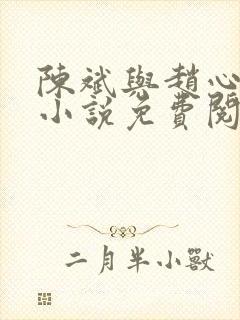 陳斌與趙心
小說免費閱
二月半小獸